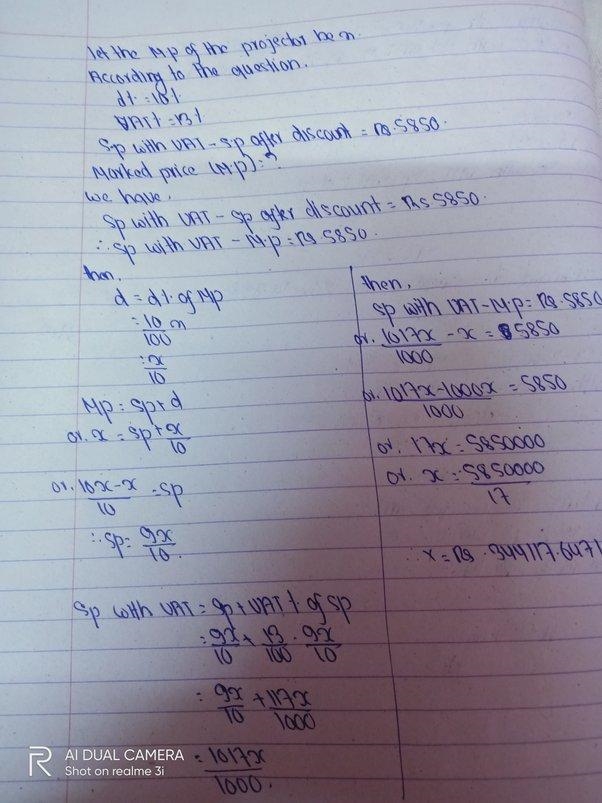 let the M.p of the projector be x.
According to the question.
d% = 10%
VAT% = 13%
Sp with VAT - sp after discount = Rs. 5850.
Marked price (M.p) = ?
we have,
Sp with VAT - sp after discount = Rs 5850.
∴ sp with VAT - M.p = Rs 5850.
then,
d = d% of Mp
= 10/100 x
= x/10
Mp = sp + d
or. x = sp + x/10
or. 10x-x/10 = sp
∴ sp = 9x/10.
Sp with VAT = sp + VAT % of sp
= 9x/10 + 13/100 . 9x/10
= 9x/10 + 117x/1000
= 1017x/1000.
then,
sp with VAT - M.p = Rs. 5850
or. 1017x/1000 - x = 5850
or. 1017x-1000x/1000 = 5850
or. 17x = 5850000
or. x = 5850000/17
∴ x = Rs. 344117.6471
AI DUAL CAMERA
Shot on realme 3i